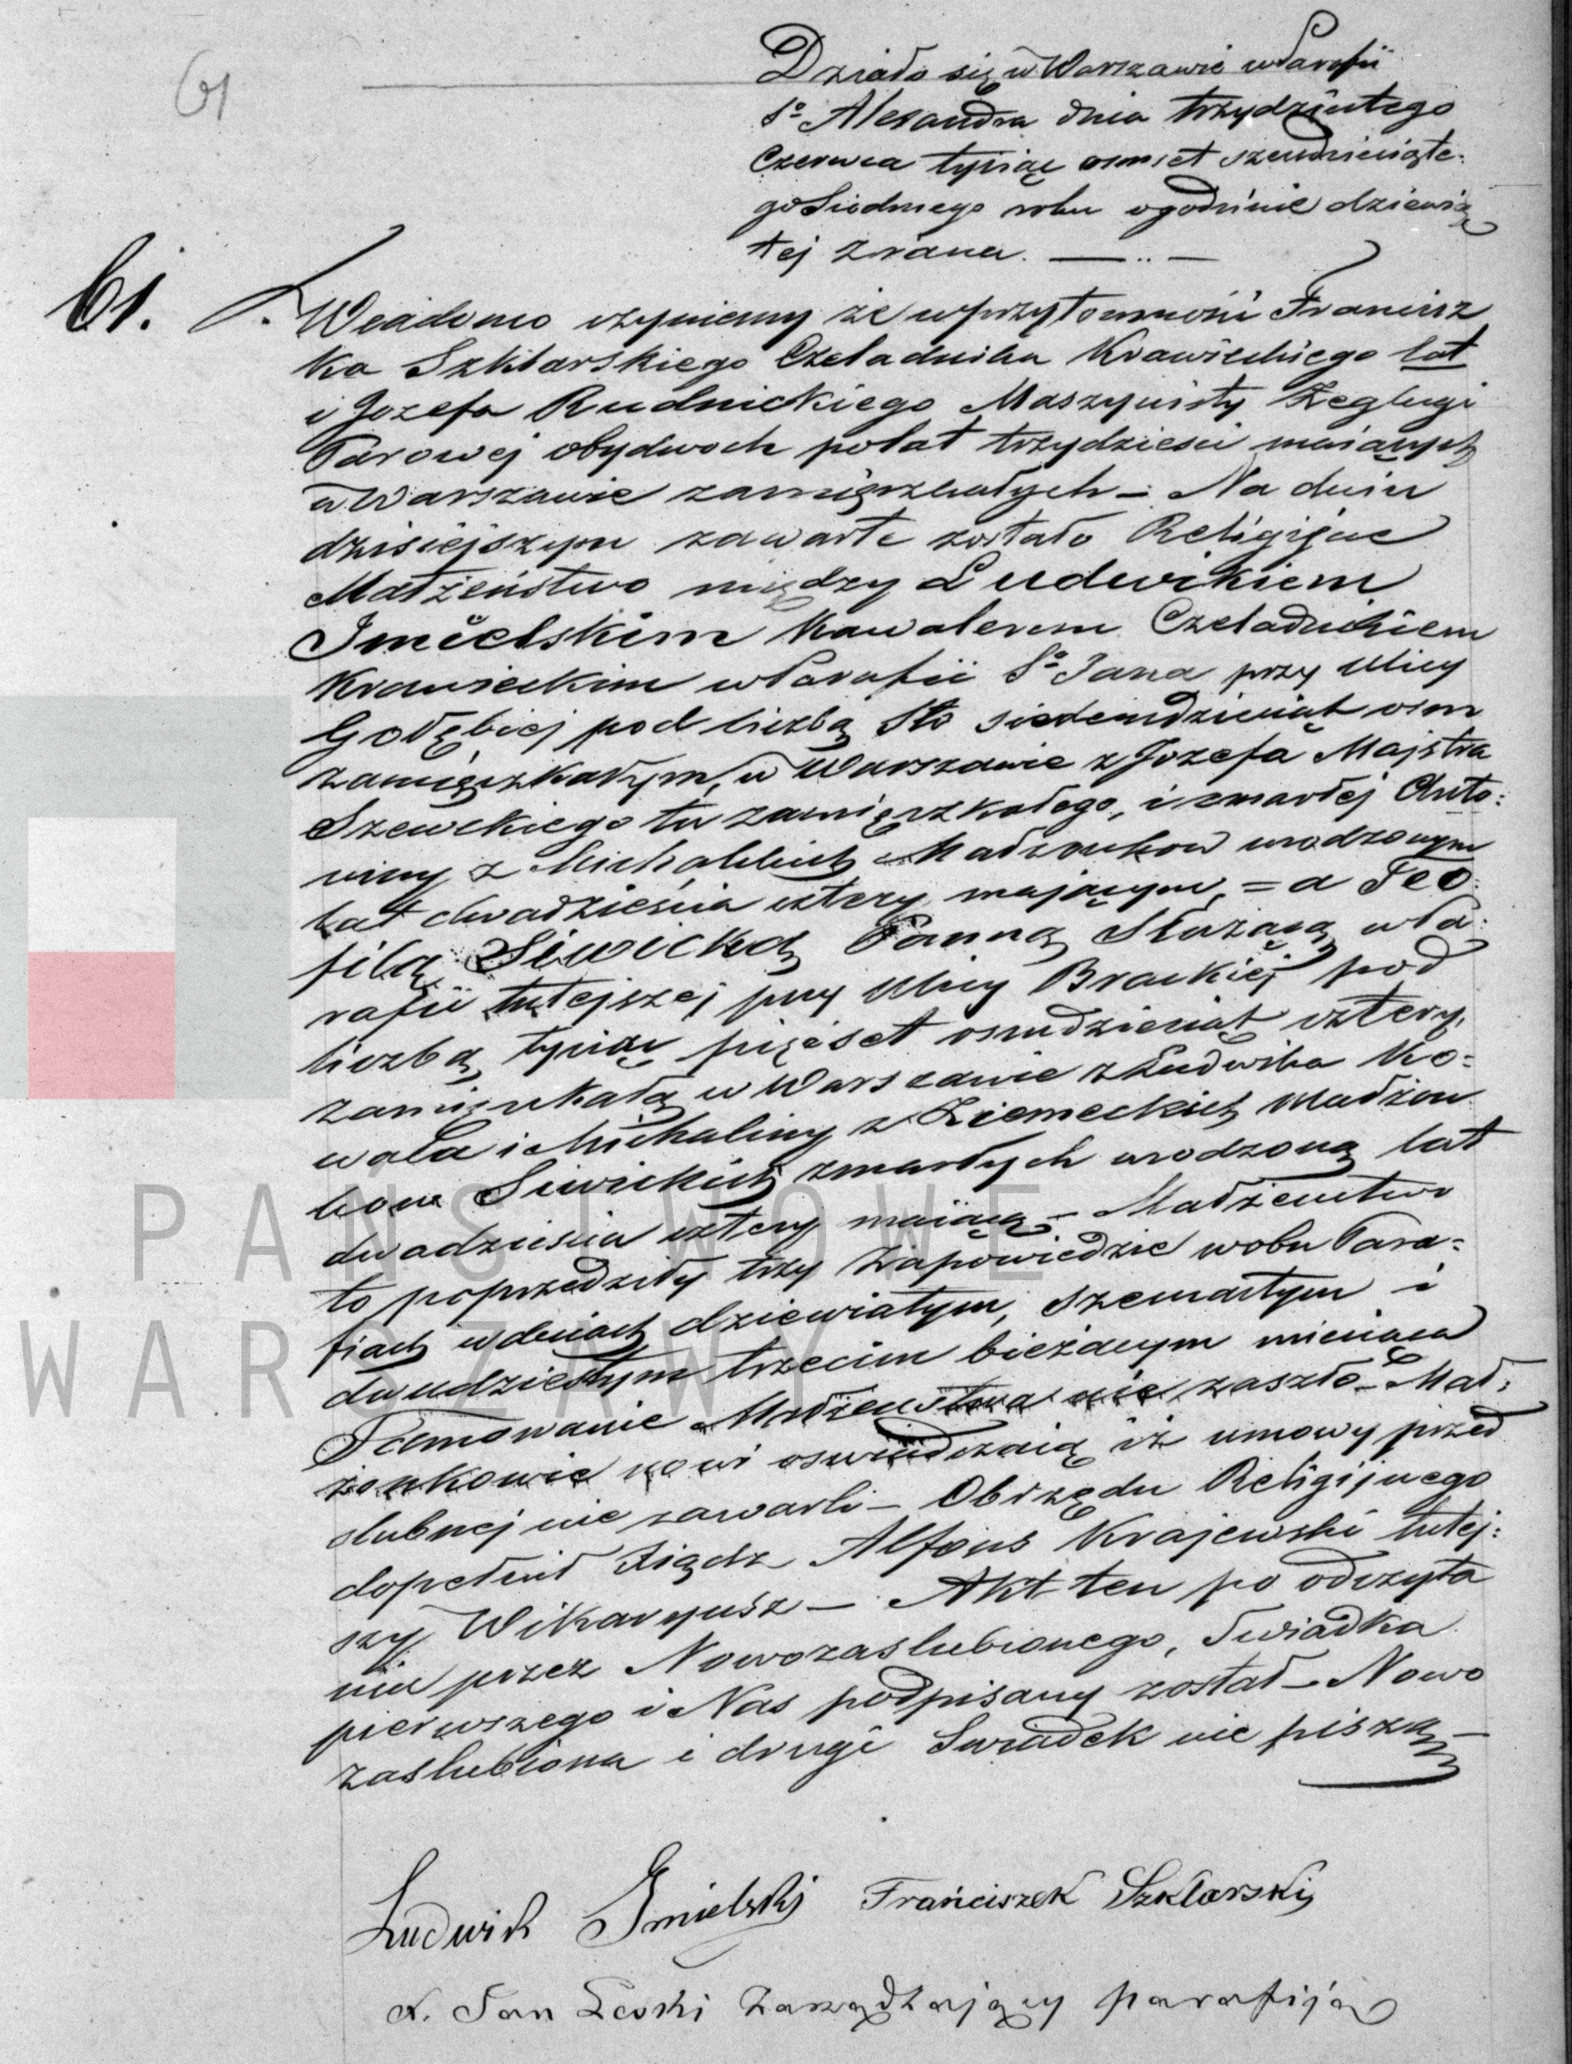 61
Działo się w Warszawie w Parafii
So Alexandra dnia trzydziestego
Czerwca tysiąc osmset szesndziesiąte-
go Siodmego roku o godzinie dziewią
tej z rana. — .. —
61. Wiadomo czyniemy że w przytomności Francisz
ka Szklarskiego Czeladnika Krawieckiego lat
i Jozefa Rudnickiego Maszynisty Żeglugi
Parowej obydwoch po lat trzydzieści maiących
w Warszawie zamięszkałych — Na dniu
dzisiejszym zawarte zostało Religijne
Małżeństwo między Ludwikiem
Imielskim Kawalerem Czeladnikiem
Krawieckim w Parafii So Jana przy Ulicy
Gołębiej pod liczbą Sto siedemdziesiąt osm
zamięszkałym, w Warszawie z Jozefa Majstra
Szewckiego tu zamięszkałego, i zmarłej Anto-
niny z Michalskich Małżonkow urodzonym
lat dwadzieścia cztery mającym, = a Teo-
filą Siwicką Panną Służącą w Pa-
rafii tutejszej przy Ulicy Brackiej pod
liczbą tysiąc pięćset osmdziesiąt cztery,
zamięszkałą w Warszawie z Ludwika Ko-
wala i Michaliny z Ziemeckich Małżon
kow Siwickich zmarłych urodzoną lat
dwadzieścia cztery maiącą — Małżeństwo
to poprzedziły trzy Zapowiedzie w obu Para-
fiach w dniach dziewiątym, szesnastym i
dwudziestym trzecim bieżącym miesiąca
Tamowanie Małżeństwa nie zaszło — Mał-
żonkowie nowi oswiadczaią iż umowy przed
slubnej nie zawarli — Obrzędu Religijnego
dopełnił Xiądz Alfons Krajewski tutej-
szy Wikaryusz — Akt ten po odczyta
niu przez Nowozaslubionego, Swiadka
pierwszego i Nas podpisany został — Nowo
zaslubiona i drugi Swiadek nie piszą —
Ludwik Imielski Franciszek Szklarski
X. Jan Leski Zarządzający parafiją
PAŃSTWOWE
WARSZAWY